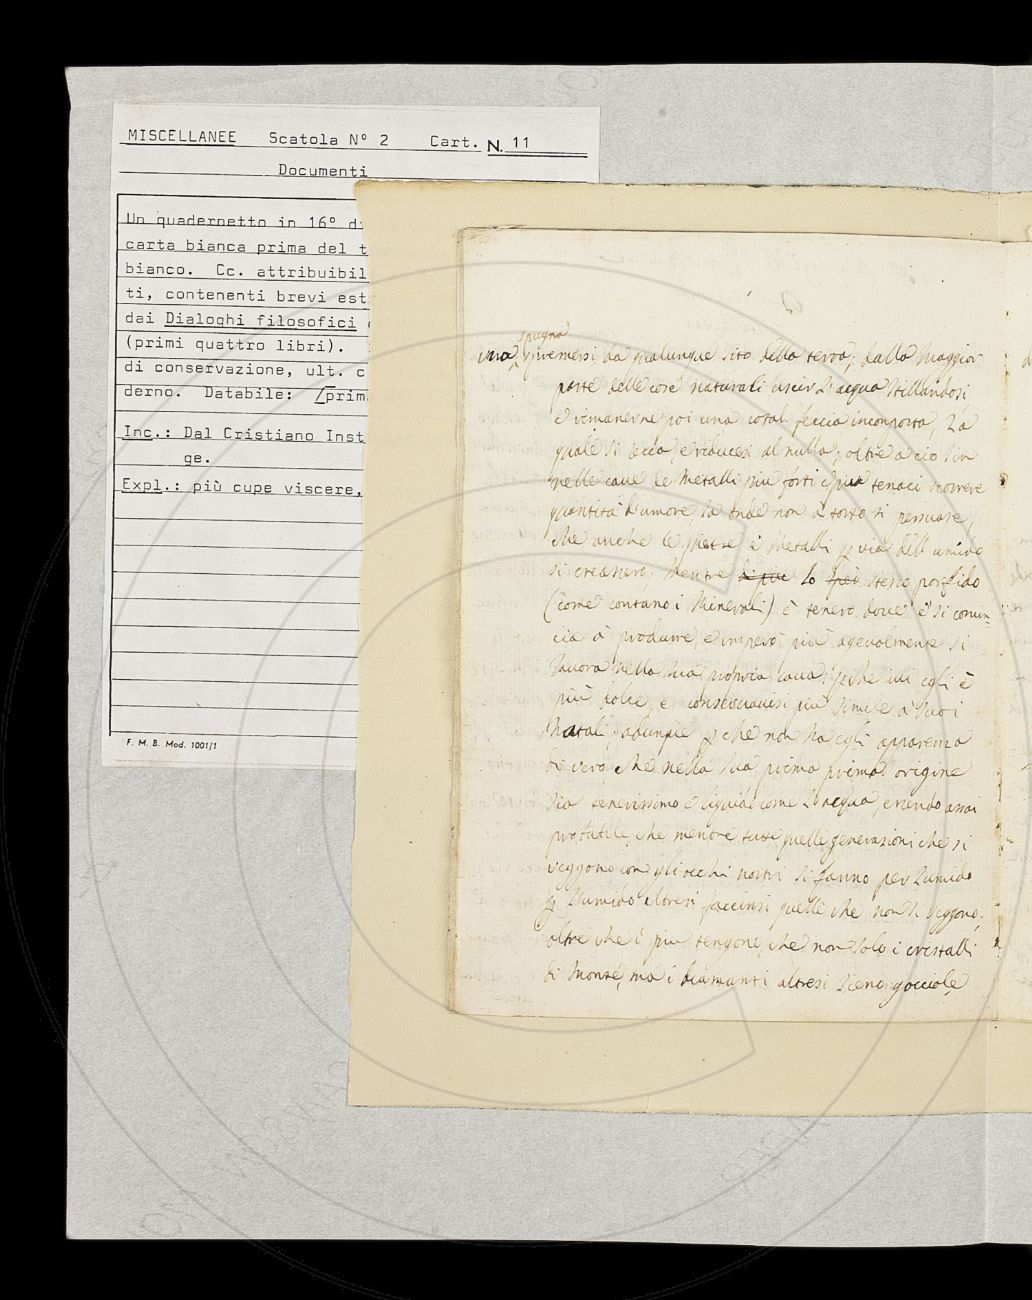 MISCELLANEE Scatola N° 2 Cart. N. 11
Documenti
Un quadernetto in 16° di
carta bianca prima del t
bianco. Cc. attribuibil
ti, contenenti brevi est
dai Dialoghi filosofici
(primi quattro libri).
di conservazione, ult. c
derno. Databile: /prim
Inc.: Dal Cristiano Inst
ge.
Expl.: più cupe viscere,
F. M. B. Mod. 1001/1
spugna
una, spremersi da qualunque sito della terra; dalla Maggior
parte delle cose naturali uscir l'acqua stillandosi
e rimanerne poi una cotal feccia incomposta, la
quale si secca, e riducesi al nulla; oltre a ciò sin
nelle cave de Metalli più forti e più tenaci scorrere
quantità d'umore, la onde non à torto si persuase,
che anche le Pietre e Metalli per via dell umido
si creassero. Mentre di più lo stesso porfido
(come contano i Minerali) è tenero dove e' si comin-
cia à produrre, e imperò più agevolmente si
lavora nella sua propria cava; perche ivi egli è
più dolce, e conseguavisi più simile a' suoi
Natali; adunque per che non ha egli apparenza
di vero, che nella sua prima prima origine
sia tenerissimo e liquido come l'acqua, essendo assai
probabile, che mentre tutte quelle generazioni che si
veggono con gli occhi nostri si fanno per l'umido
per l'umido altresì faccinsi quelle che non si veggono;
oltre che i più tengono, che non solo i cristalli
di Monte, ma i diamanti altresì sieno gocciole